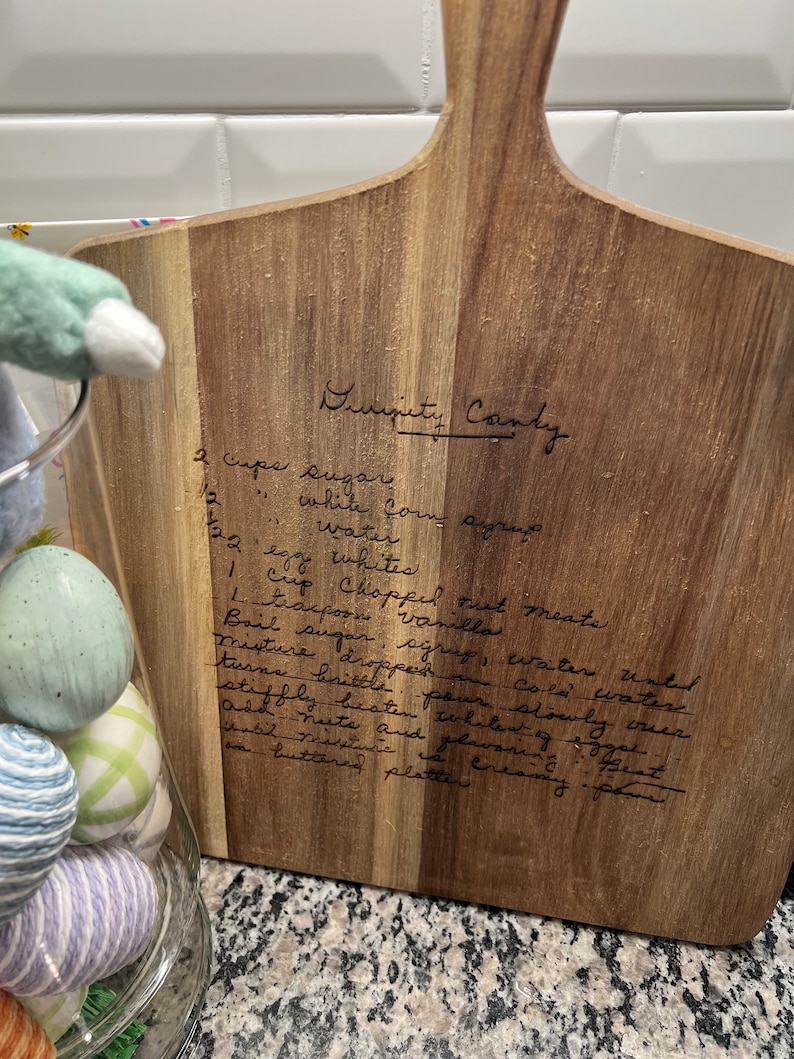 Divinity Candy
2 cups sugar
1/2 " white corn syrup
1/2 " water
2 egg whites
1 cup chopped nut meats
1 teaspoon vanilla
Boil sugar, syrup, water until
mixture dropped in cold water
turns brittle. pour slowly over
stiffly beaten whites of eggs.
add nuts and flavoring. Beat
until mixture is creamy. pour
on buttered platter